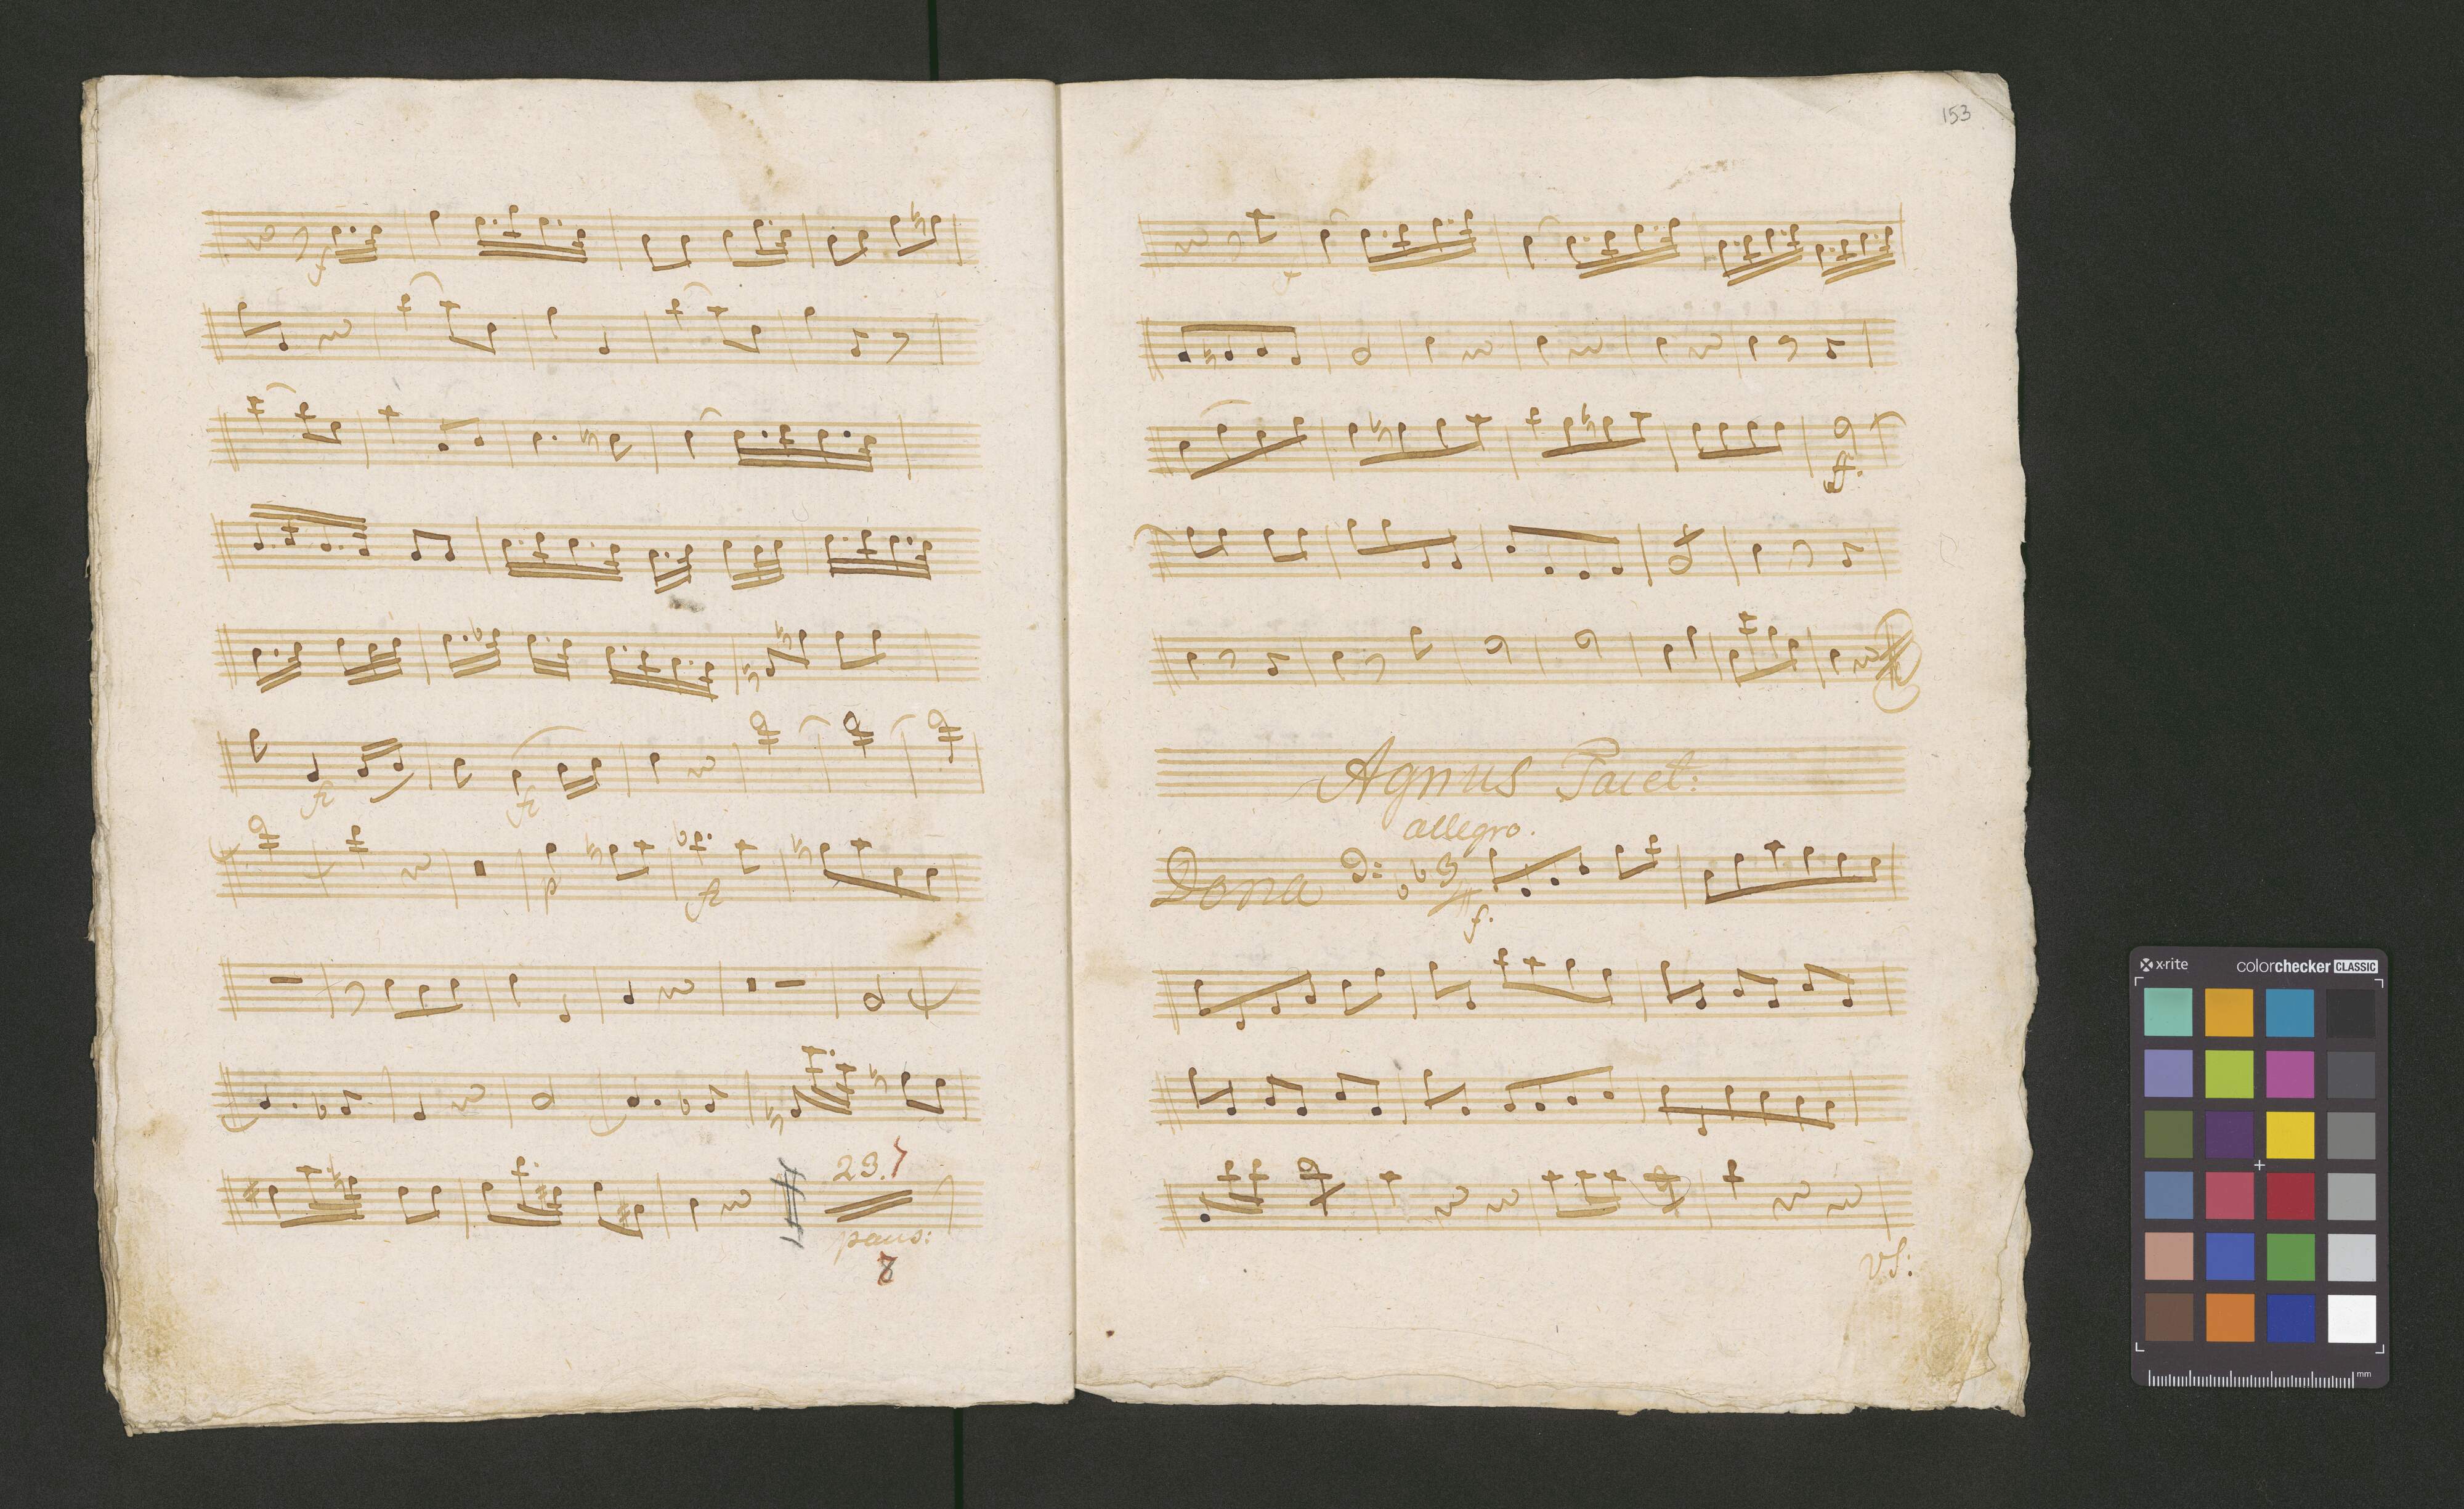 f
fz
fz
p
fz
23.
paus:
8
153
f
f.
Agnus Tacet:
allegro.
Dona
3
f.
vS:
x-rite
colorchecker CLASSIC
mm